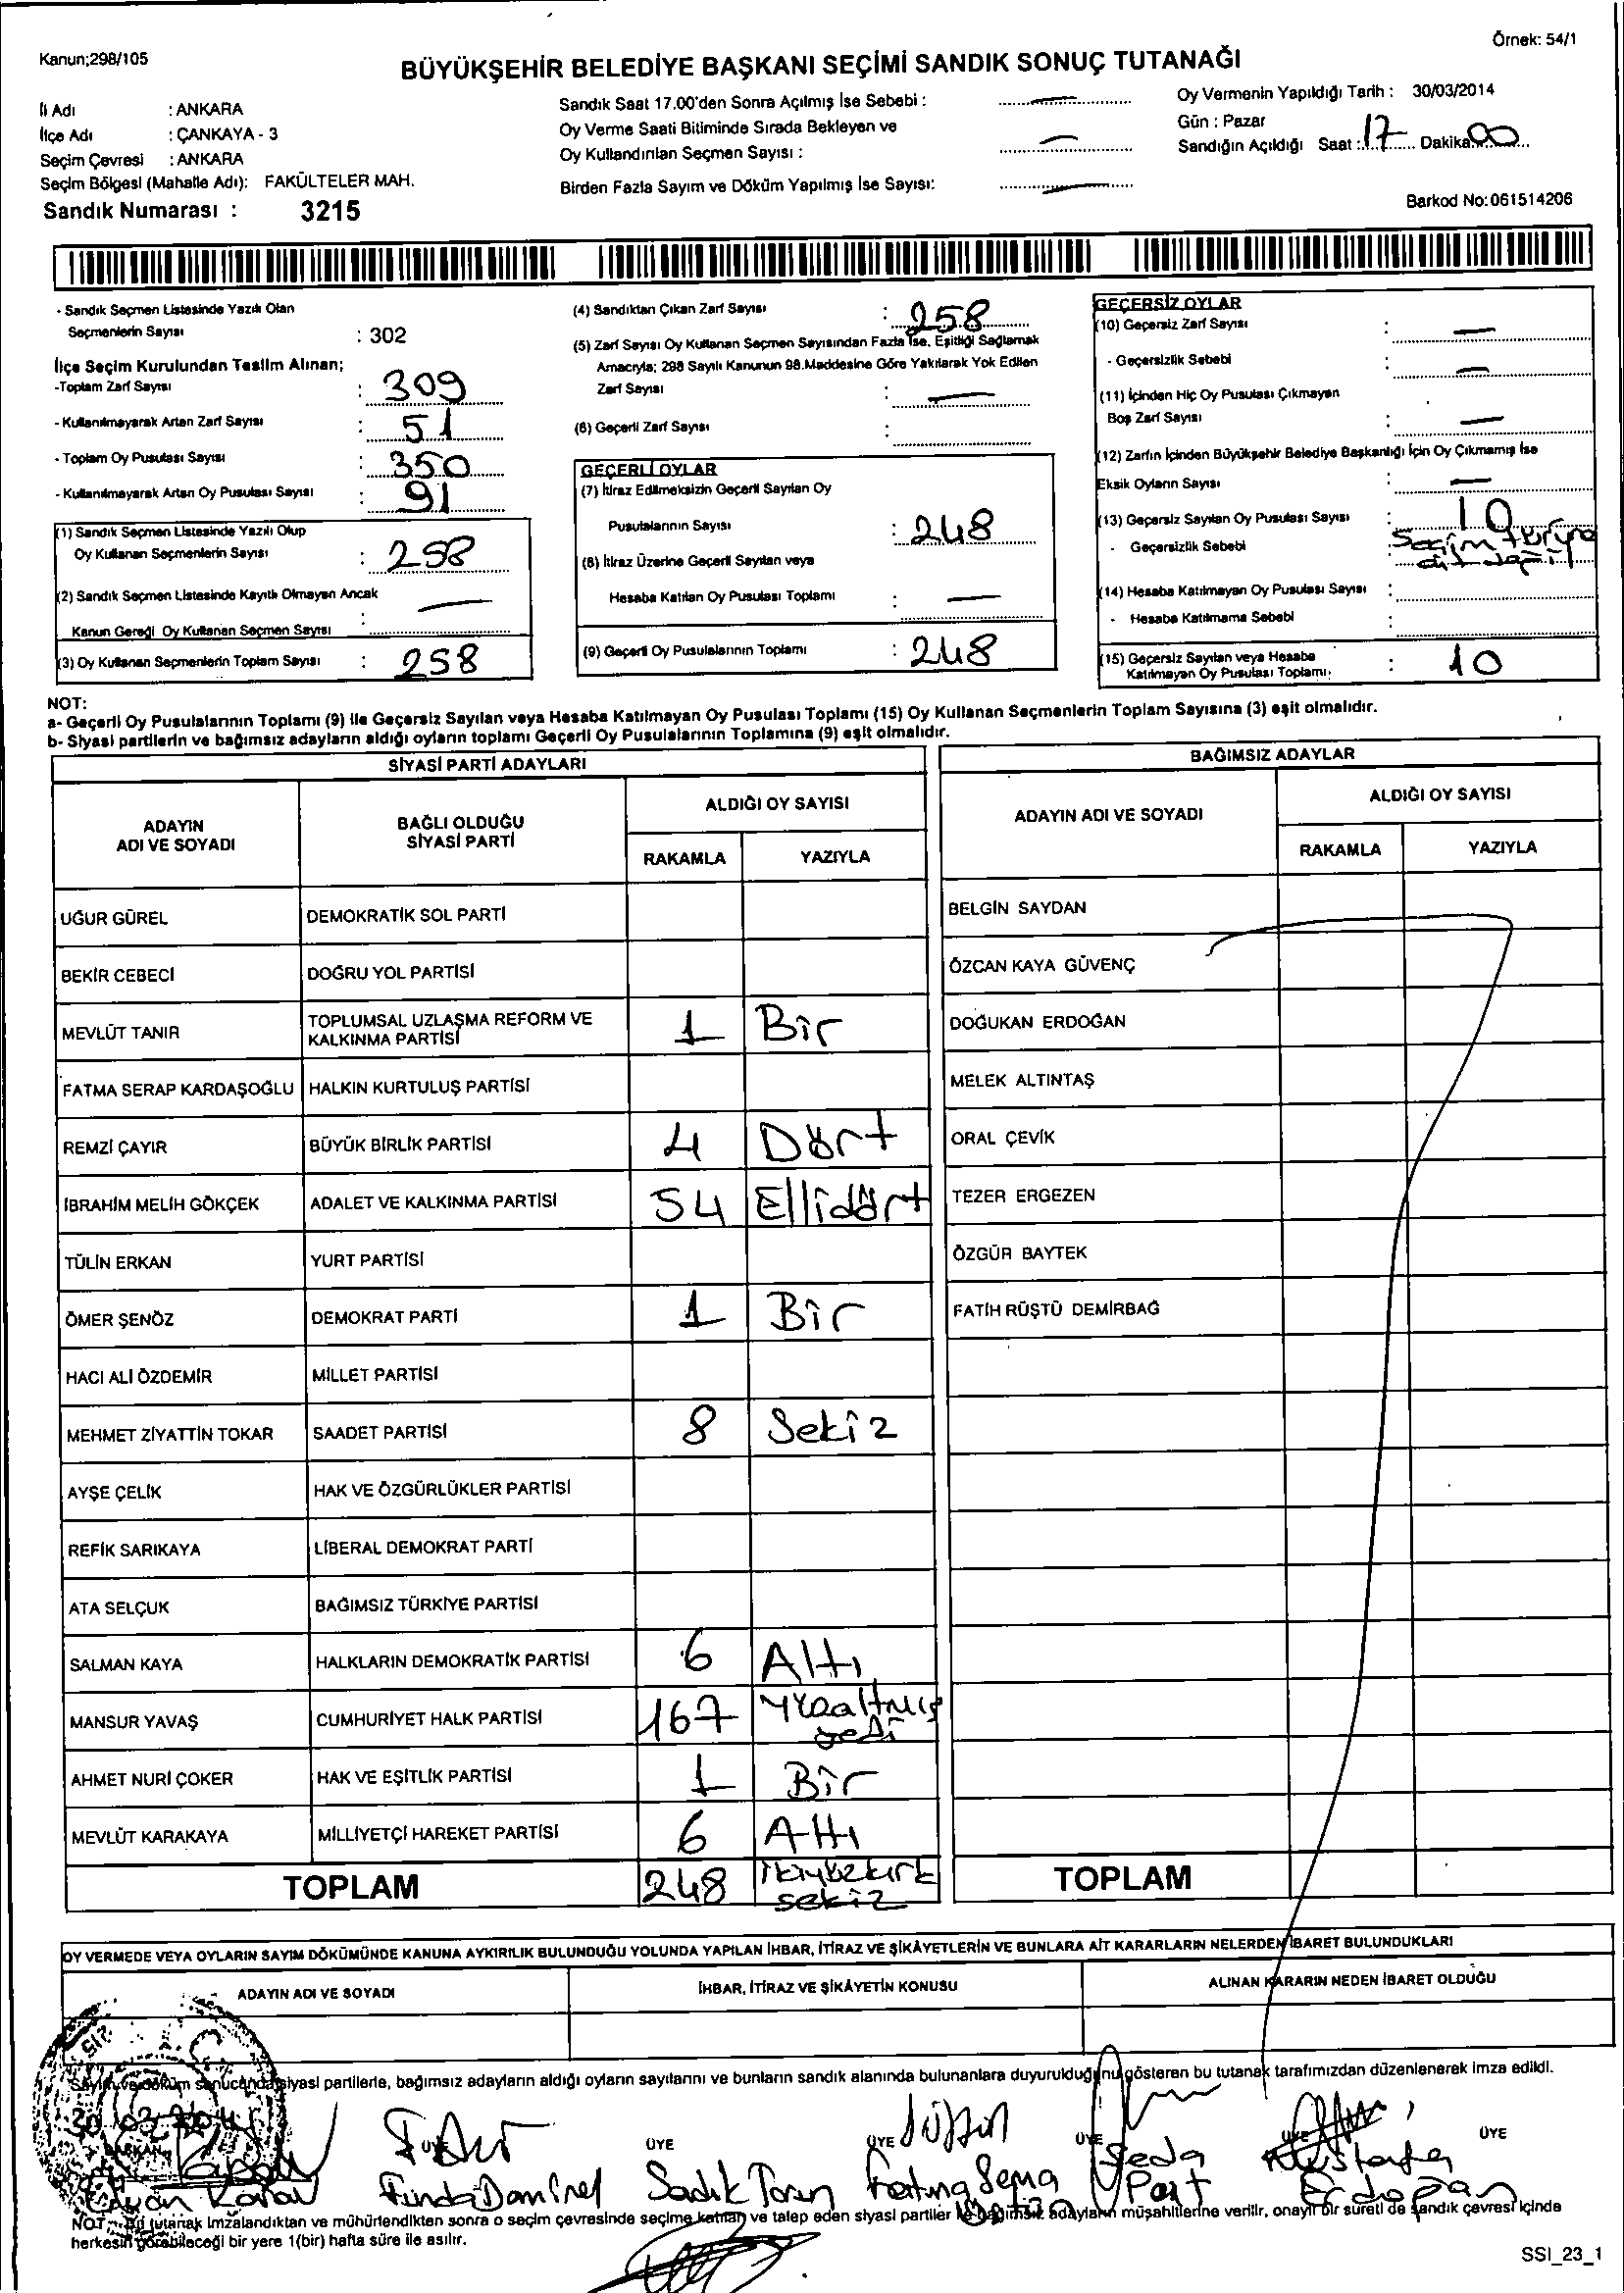 Örnek: 54/1
Kanun;298/105
BÜYÜKŞEHİR BELEDİYE BAŞKANI SEÇİMİ SANDIK SONUÇ TUTANAĞI
İl Adı : ANKARA
İlçe Adı : ÇANKAYA - 3
Seçim Çevresi : ANKARA
Seçim Bölgesi (Mahalle Adı): FAKÜLTELER MAH.
Sandık Numarası : 3215
Sandık Saat 17.00'den Sonra Açılmış İse Sebebi : —
Oy Verme Saati Bitiminde Sırada Bekleyen ve
Oy Kullandırılan Seçmen Sayısı : —
Birden Fazla Sayım ve Döküm Yapılmış İse Sayısı: —
Oy Vermenin Yapıldığı Tarih : 30/03/2014
Gün : Pazar
Sandığın Açıldığı Saat : 17 Dakika 00
Barkod No:061514206
- Sandık Seçmen Listesinde Yazılı Olan
Seçmenlerin Sayısı : 302
İlçe Seçim Kurulundan Teslim Alınan;
-Toplam Zarf Sayısı : 309
- Kullanılmayarak Artan Zarf Sayısı : 51
- Toplam Oy Pusulası Sayısı : 350
- Kullanılmayarak Artan Oy Pusulası Sayısı : 91
(1) Sandık Seçmen Listesinde Yazılı Olup
Oy Kullanan Seçmenlerin Sayısı : 258
(2) Sandık Seçmen Listesinde Kayıtlı Olmayan Ancak
Kanun Gereği Oy Kullanan Seçmen Sayısı : —
(3) Oy Kullanan Seçmenlerin Toplam Sayısı : 258
(4) Sandıktan Çıkan Zarf Sayısı : 258
(5) Zarf Sayısı Oy Kullanan Seçmen Sayısından Fazla İse, Eşitliği Sağlamak
Amacıyla; 298 Sayılı Kanunun 98.Maddesine Göre Yakılarak Yok Edilen
Zarf Sayısı : —
(6) Geçerli Zarf Sayısı :
GEÇERLİ OYLAR
(7) İtiraz Edilmeksizin Geçerli Sayılan Oy
Pusulalarının Sayısı : 248
(8) İtiraz Üzerine Geçerli Sayılan veya
Hesaba Katılan Oy Pusulası Toplamı : —
(9) Geçerli Oy Pusulalarının Toplamı : 248
GEÇERSİZ OYLAR
(10) Geçersiz Zarf Sayısı : —
- Geçersizlik Sebebi : —
(11) İçinden Hiç Oy Pusulası Çıkmayan
Boş Zarf Sayısı : —
(12) Zarfın İçinden Büyükşehir Belediye Başkanlığı İçin Oy Çıkmamış İse
Eksik Oyların Sayısı : —
(13) Geçersiz Sayılan Oy Pusulası Sayısı : 10
- Geçersizlik Sebebi : Seçim
(14) Hesaba Katılmayan Oy Pusulası Sayısı :
- Hesaba Katılmama Sebebi :
(15) Geçersiz Sayılan veya Hesaba
Katılmayan Oy Pusulası Toplamı. : 10
NOT:
a- Geçerli Oy Pusulalarının Toplamı (9) ile Geçersiz Sayılan veya Hesaba Katılmayan Oy Pusulası Toplamı (15) Oy Kullanan Seçmenlerin Toplam Sayısına (3) eşit olmalıdır.
b- Siyasi partilerin ve bağımsız adayların aldığı oyların toplamı Geçerli Oy Pusulalarının Toplamına (9) eşit olmalıdır.
SİYASİ PARTİ ADAYLARI
ADAYIN ADI VE SOYADI
BAĞLI OLDUĞU SİYASİ PARTİ
ALDIĞI OY SAYISI
RAKAMLA YAZIYLA
UĞUR GÜREL DEMOKRATİK SOL PARTİ
BEKİR CEBECİ DOĞRU YOL PARTİSİ
MEVLÜT TANIR TOPLUMSAL UZLAŞMA REFORM VE KALKINMA PARTİSİ 1 Bir
FATMA SERAP KARDAŞOĞLU HALKIN KURTULUŞ PARTİSİ
REMZİ ÇAYIR BÜYÜK BİRLİK PARTİSİ 4 Dört
İBRAHİM MELİH GÖKÇEK ADALET VE KALKINMA PARTİSİ 54 Ellidört
TÜLİN ERKAN YURT PARTİSİ
ÖMER ŞENÖZ DEMOKRAT PARTİ 1 Bir
HACI ALİ ÖZDEMİR MİLLET PARTİSİ
MEHMET ZİYATTİN TOKAR SAADET PARTİSİ 8 Sekiz
AYŞE ÇELİK HAK VE ÖZGÜRLÜKLER PARTİSİ
REFİK SARIKAYA LİBERAL DEMOKRAT PARTİ
ATA SELÇUK BAĞIMSIZ TÜRKİYE PARTİSİ
SALMAN KAYA HALKLARIN DEMOKRATİK PARTİSİ 6 Altı
MANSUR YAVAŞ CUMHURİYET HALK PARTİSİ 167 Yüzaltmış yedi
AHMET NURİ ÇOKER HAK VE EŞİTLİK PARTİSİ 1 Bir
MEVLÜT KARAKAYA MİLLİYETÇİ HAREKET PARTİSİ 6 Altı
TOPLAM 248 İkiyüzkırk sekiz
BAĞIMSIZ ADAYLAR
ADAYIN ADI VE SOYADI
ALDIĞI OY SAYISI
RAKAMLA YAZIYLA
BELGİN SAYDAN
ÖZCAN KAYA GÜVENÇ
DOĞUKAN ERDOĞAN
MELEK ALTINTAŞ
ORAL ÇEVİK
TEZER ERGEZEN
ÖZGÜR BAYTEK
FATİH RÜŞTÜ DEMİRBAĞ
TOPLAM
OY VERMEDE VEYA OYLARIN SAYIM DÖKÜMÜNDE KANUNA AYKIRILIK BULUNDUĞU YOLUNDA YAPILAN İHBAR, İTİRAZ VE ŞİKÂYETLERİN VE BUNLARA AİT KARARLARIN NELERDEN İBARET BULUNDUKLARI
ADAYIN ADI VE SOYADI
İHBAR, İTİRAZ VE ŞİKÂYETİN KONUSU
ALINAN KARARIN NEDEN İBARET OLDUĞU
Sayım ve döküm sonucunda siyasi partilerle, bağımsız adayların aldığı oyların sayılarını ve bunların sandık alanında bulunanlara duyurulduğunu gösteren bu tutanak tarafımızdan düzenlenerek imza edildi.
30.03.2014
BAŞKAN ÜYE ÜYE ÜYE ÜYE ÜYE ÜYE
Funda Demirel Sadık Torun Fatma Sema Seda Mustafa Erdoğan
NOT : Bu tutanak imzalandıktan ve mühürlendikten sonra o seçim çevresinde seçime katılan ve talep eden siyasi partiler ile bağımsız adayların müşahitlerine verilir, onaylı bir sureti de sandık çevresi içinde
herkesin görebileceği bir yere 1(bir) hafta süre ile asılır.
SSI_23_1